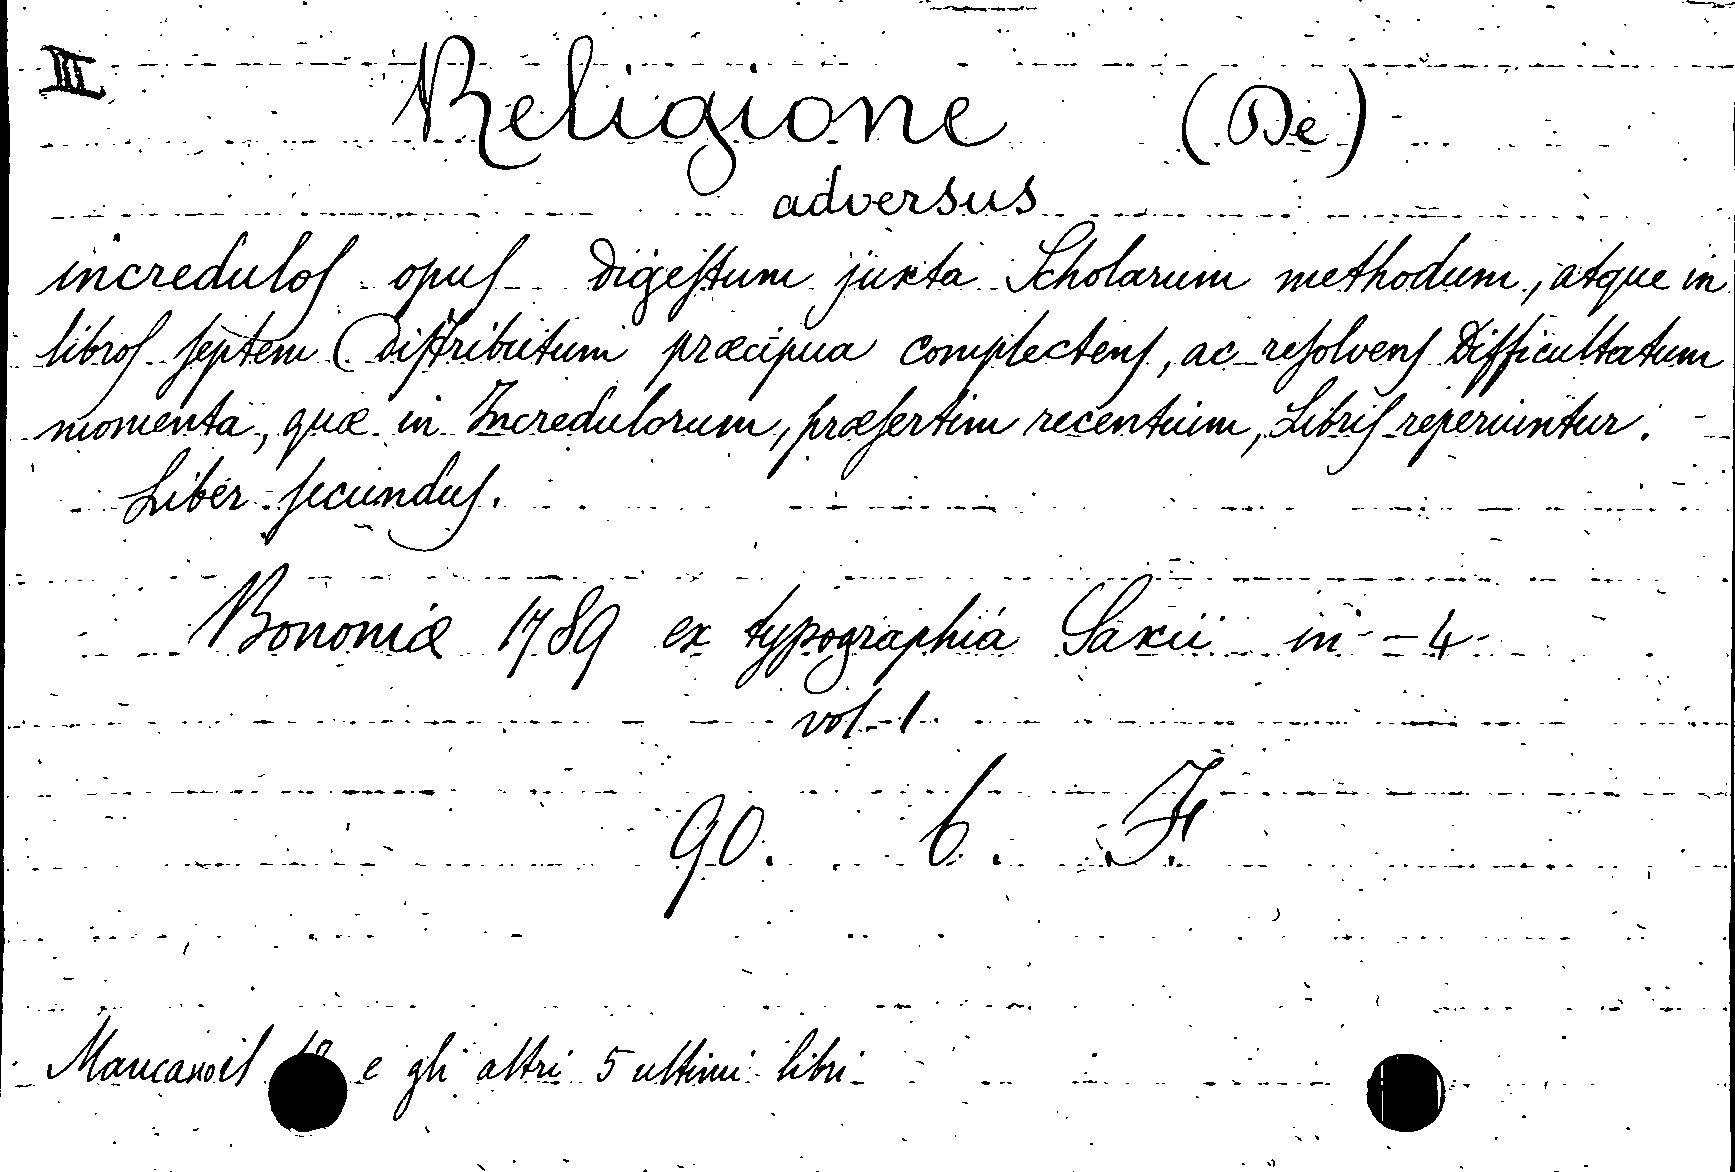 III
Religione (De)
adversus
incredulos opus Digestum juxta Scholarum methodum, atque in
libros septem Distributum præcipua complectens, ac resolvens Difficultatum
momenta, quæ in Incredulorum, præsertim recentium, Libris reperiuntur.
Liber secundus.
Bononiæ 1789 ex typographiá Saxii in-4
vol. 1
90. b. F.
Mancano il e gli altri 5 ultimi libri